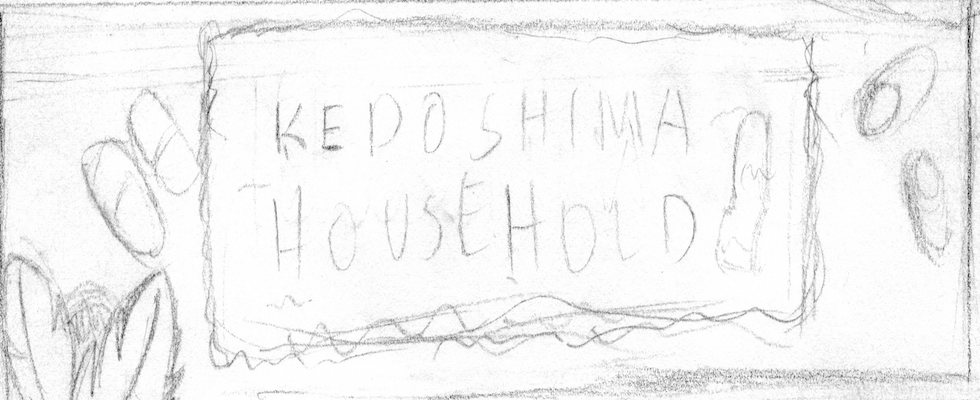 KEDOSHIMA
HOUSEHOLD